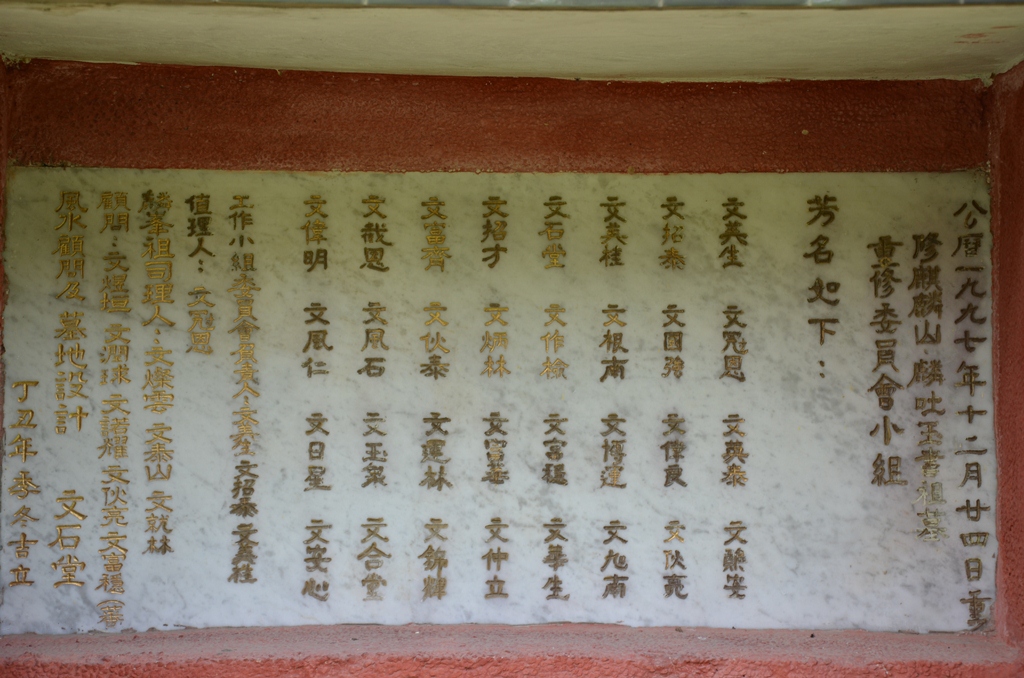 公曆一九九七年十二月廿四日重
修麒麟山麟吐玉書祖墓
重修委員會小組
芳名如下：
文英生 文冠恩 文英泰 文聯安
文招泰 文國強 文偉良 文伙亮
文英柱 文根南 文博達 文旭南
文石堂 文作檢 文富穩 文華生
文招才 文炳林 文富華 文仲立
文富齊 文伙泰 文運林 文錦輝
文我恩 文風石 文玉 文合堂
文偉明 文風仁 文日星 文安心
工作小組委員會負責人：文英生 文招泰 文英柱
值理人：文冠恩
麟峯祖司理人：文燦雲 文泰山 文就林
顧問：文煜垣 文潤球 文諾耀 文伙亮 文富穩
風水顧問及墓地設計 文石堂
丁丑年季冬吉立